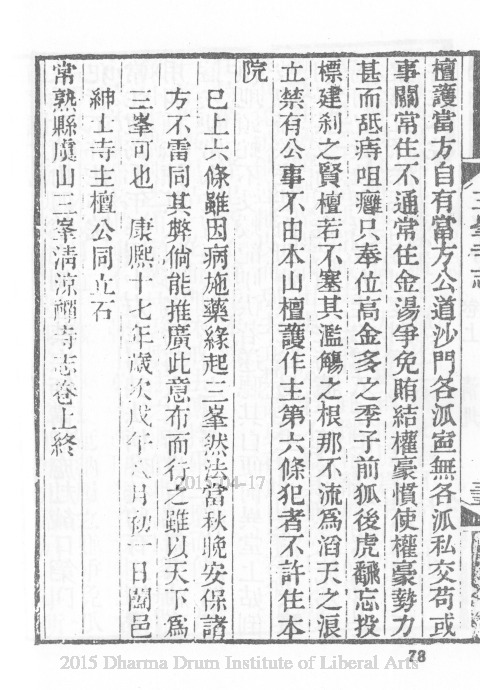 檀護當方自有當方公道沙門各派寧無各派私交苟或
事關常住不通常住金湯爭免賄結權豪慣使權豪勢力
甚而䑛痔咀癰只奉位高金多之季子前狐後虎翻忘投
標建剎之賢檀若不塞其濫觴之根那不流為滔天之浪
立禁有公事不由本山檀護作主第六條犯者不許住本
院
已上六條雖因病施藥緣起三峯然法當秋晚安保諸
方不雷同其弊倘能推廣此意布而行之雖以天下為
三峯可也 康熙十七年歲次戊午六月初一日闔邑
紳士寺主檀公同立石
常熟縣虞山三峯清涼禪寺志卷上終
三峯寺志
2015-04-17
78
2015 Dharma Drum Institute of Liberal Arts